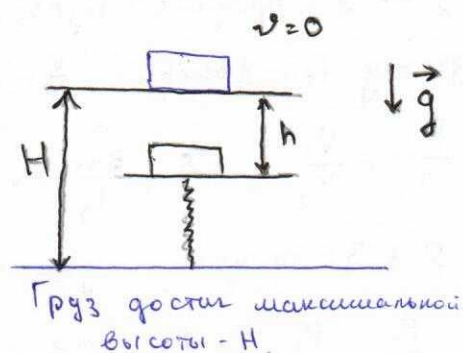 v=0
g
H
h
Груз достиг максимальной
высоты - H.